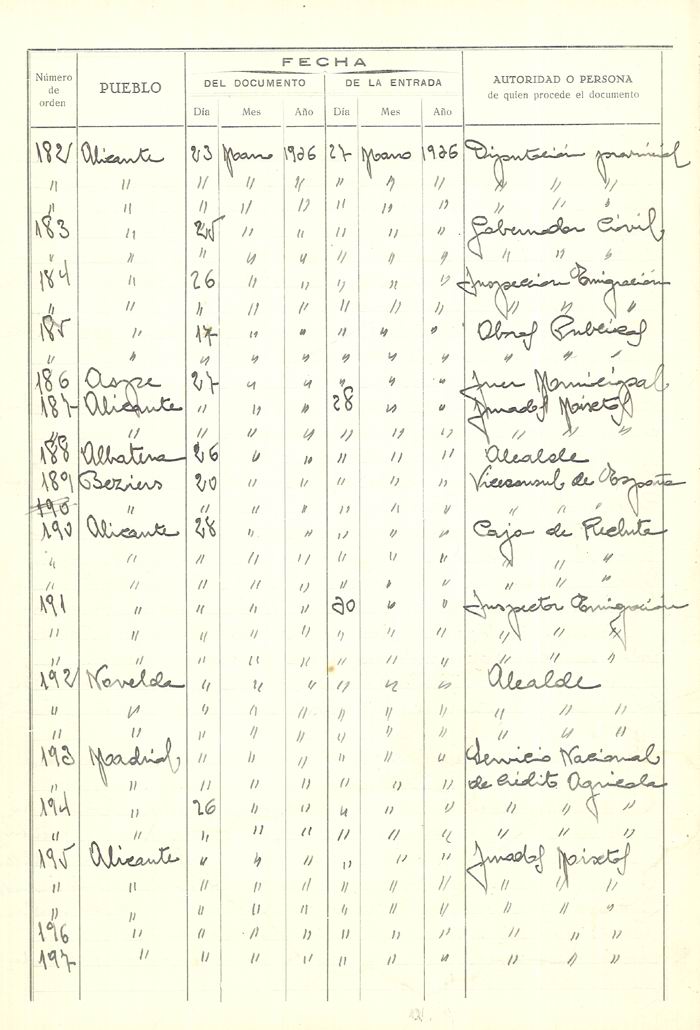 FECHA
Número de orden PUEBLO DEL DOCUMENTO DE LA ENTRADA AUTORIDAD O PERSONA de quien procede el documento
Día Mes Año Día Mes Año
182 Alicante 23 Marzo 1936 27 Marzo 1936 Diputación provincial
" " " " " " " " " " "
" " " " " " " " " " "
183 " 25 " " " " " Gobernador Civil
" " " " " " " " " " "
184 " 26 " " " " " Inspección Emigración
" " " " " " " " " " "
185 " 17 " " " " " Obras Publicas
" " " " " " " " " " "
186 Aspe 27 " " " " " Juez Municipal
187 Alicante " " " 28 " " Jurados Mixtos
" " " " " " " " " "
188 Albatera 26 " " " " " Alcalde
189 Beziers 20 " " " " " Viceconsul de España
190 " " " " " " " " " "
190 Alicante 28 " " " " " Caja de Recluta
" " " " " " " " " " "
" " " " " " " " " " "
191 " " " " 30 " " Inspector Emigración
" " " " " " " " " " "
" " " " " " " " " " "
192 Novelda " " " " " " Alcalde
" " " " " " " " " " "
" " " " " " " " " " "
193 Madrid " " " " " " Servicio Nacional
" " " " " " " " de Crédito Agricola
194 " 26 " " " " " " " "
" " " " " " " " " " "
195 Alicante " " " " " " Jurados Mixtos
" " " " " " " " " " "
" " " " " " " " " " "
196 " " " " " " " " " "
197 " " " " " " " " " "